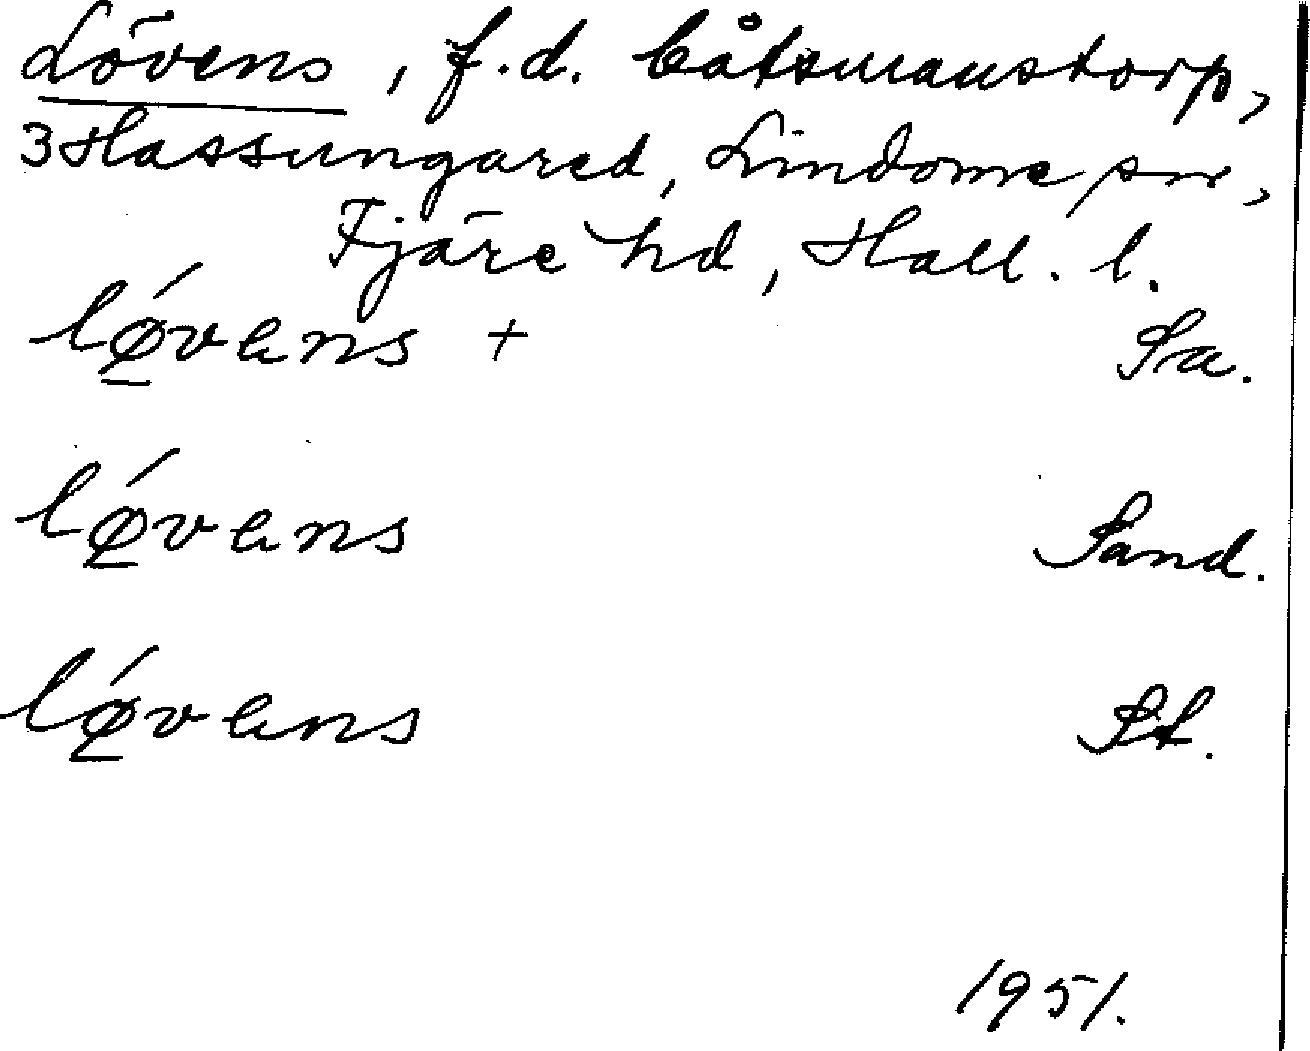 Lövens, f.d. båtsmanstorp,
3 Hassungared, Lindome sn,
Fjäre hd, Hall. l.
lǿ̲vens + Sa.
lǿ̲vens Sand.
lǿ̲vens St.
1951.